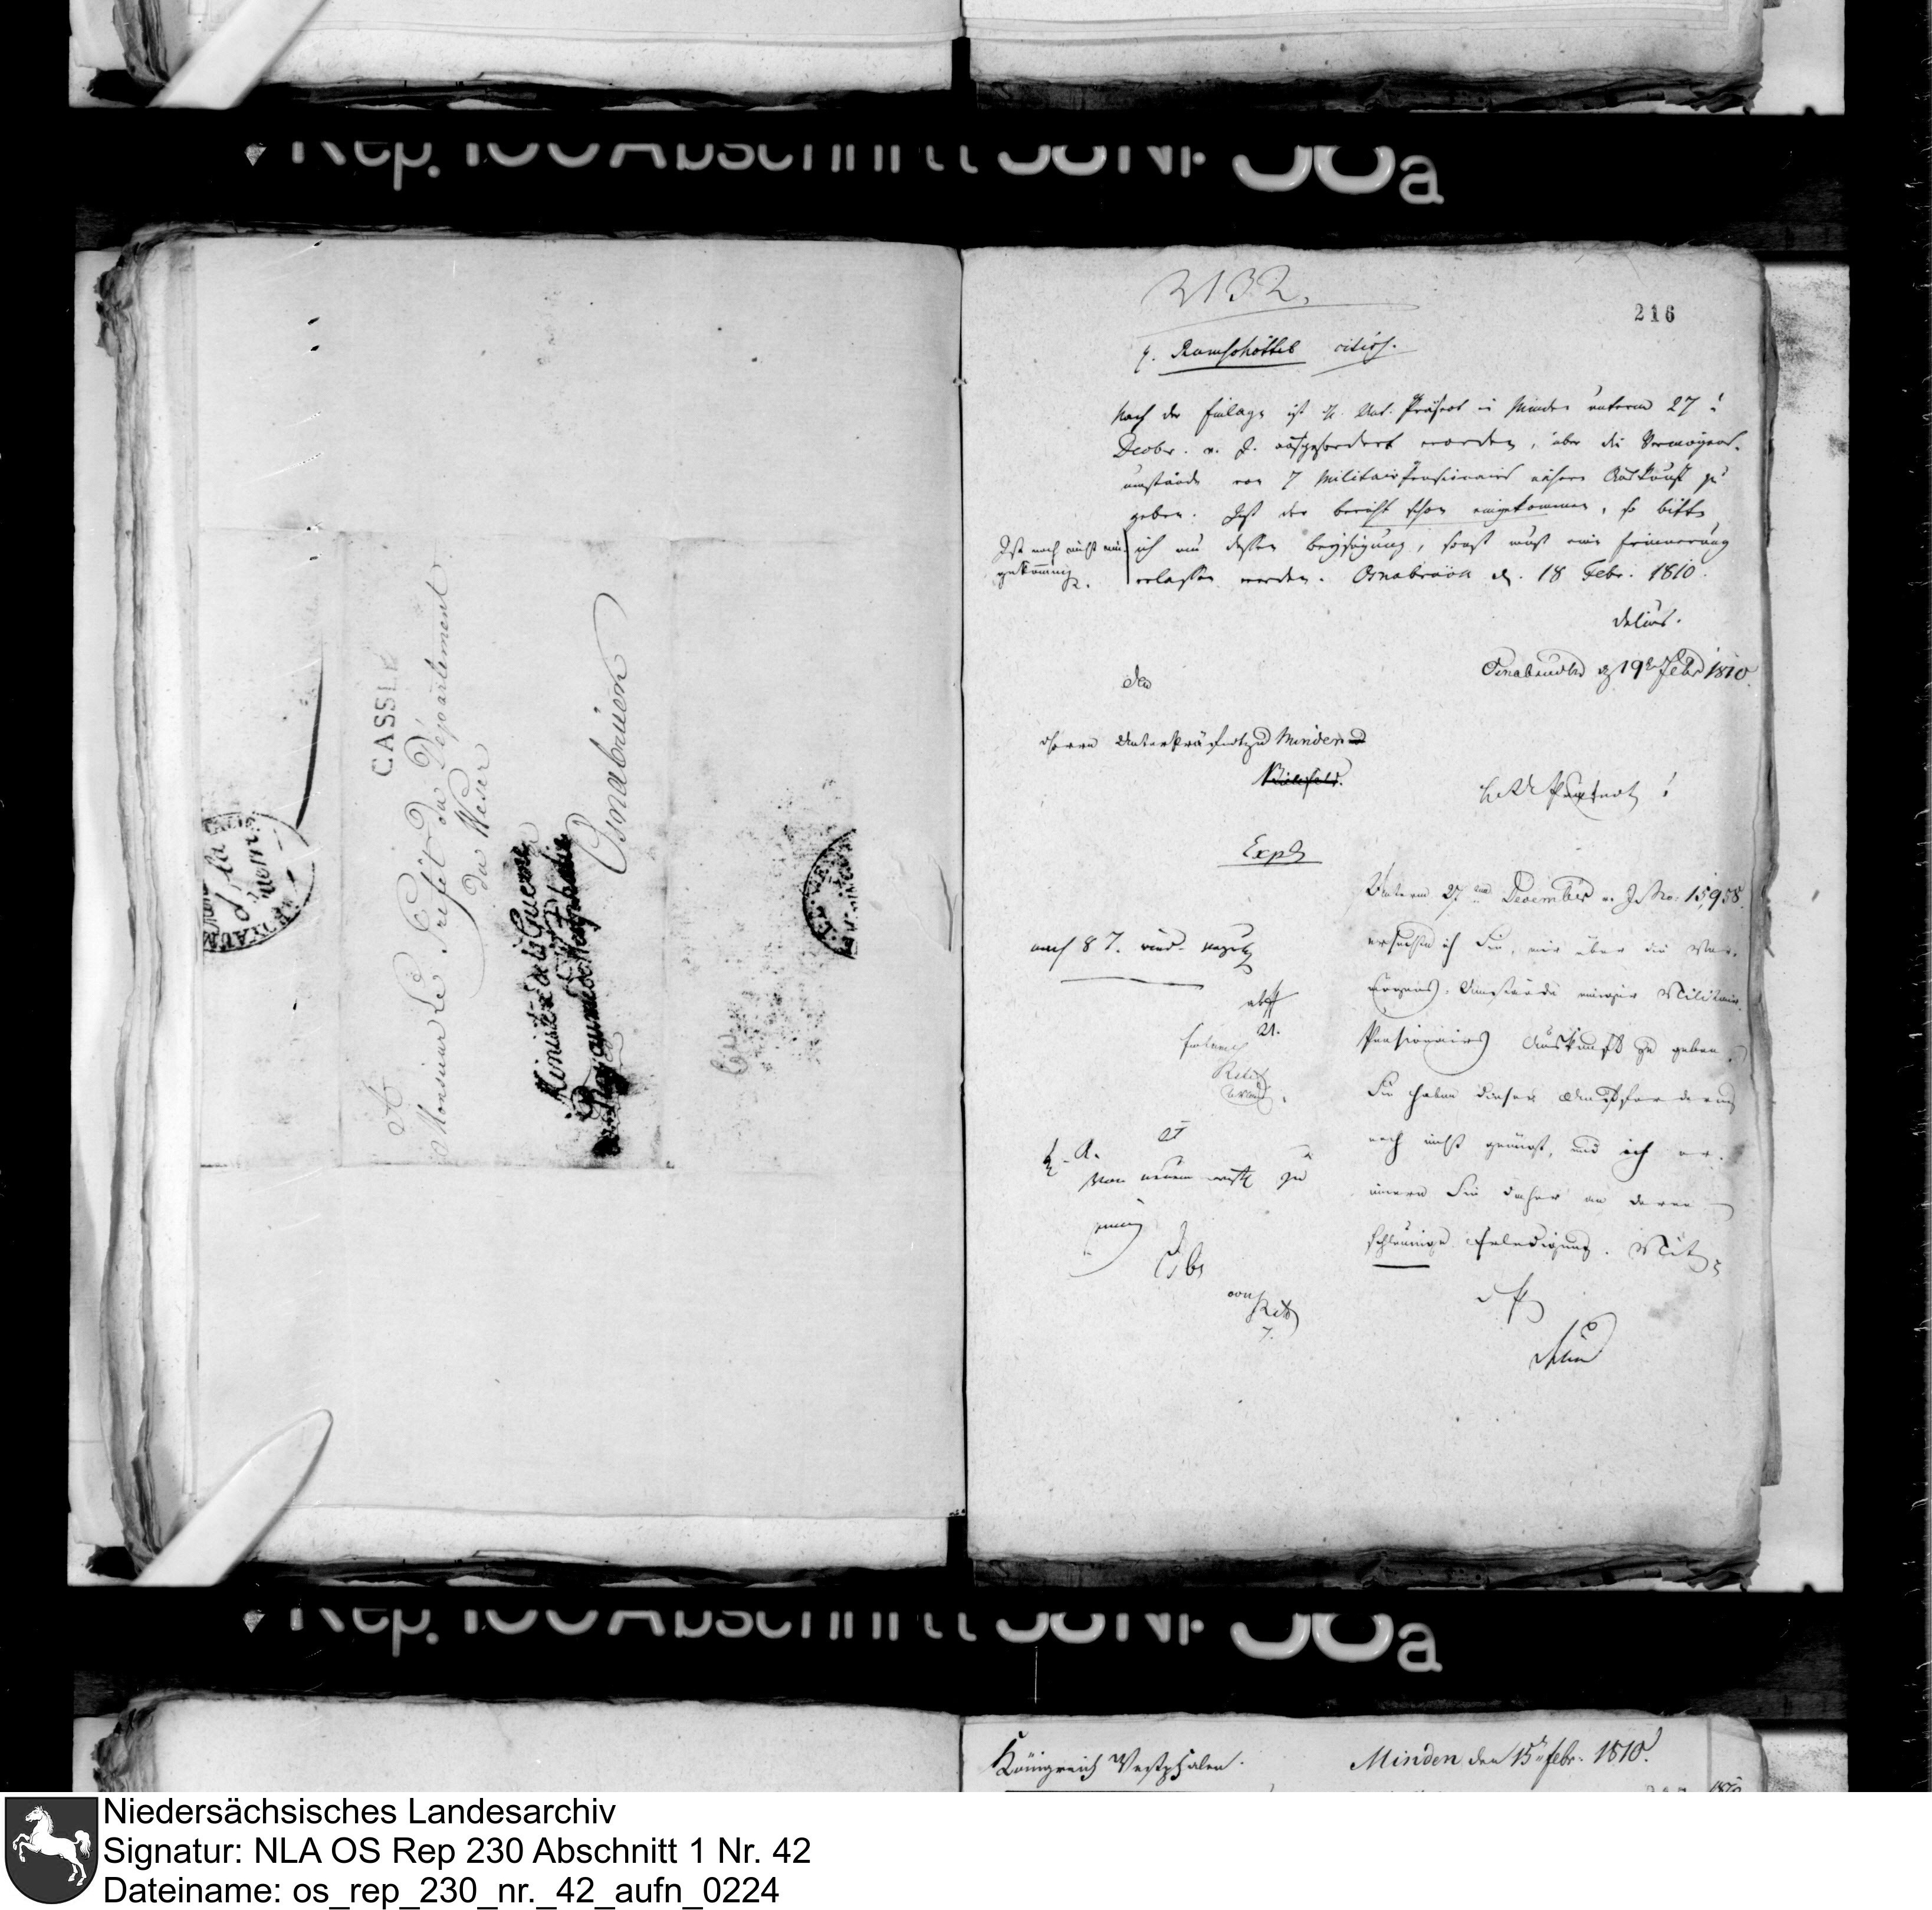 Rep. 100 Abschnitt 58 Nr 38a
A
Monsieur Le Préfet du Département
du Weser
Osnabruck
CASSEL
Ministère de la Guerre
Royaume de Westphalie
2132.
216
H. Ramschöttel citiss.
Nach der Einlage ist H. Unt. Präfect in Minden unterm 27
Decbr. v. J. aufgefordert worden, über die Vermögens-
umstände von 7 Militairpensionairs nähere Auskunft zu
geben. Ist der Bericht schon eingekommen, so bitte
ich um dessen Beyfügung, sonst muß eine Erinnerung
erlassen werden. Osnabrück d. 18 Febr. 1810.
Ist noch nicht ein-
gekommen
Delius.
Osnabrück d 19 Febr 1810.
den
Herrn Unterpräfect zu Minden
Bielefeld.
Herr Unterpräfect!
Exp
Unterm 27 December v. J. No: 15,958.
ersuchte ich Sie, mir über die Ver-
mögens-Umstände einiger Militair
Pensionairs Auskunft zu geben.
Sie haben dieser Aufforderung
noch nicht genügt, und ich er-
innere Sie daher an deren
schleunige Erledigung. Mit
nach 8 T. wied. vorzul
21.
Von neuem
zu
Königreich Westphalen.
Minden den 15 Febr. 1810.
Niedersächsisches Landesarchiv
Signatur: NLA OS Rep 230 Abschnitt 1 Nr. 42
Dateiname: os_rep_230_nr._42_aufn_0224